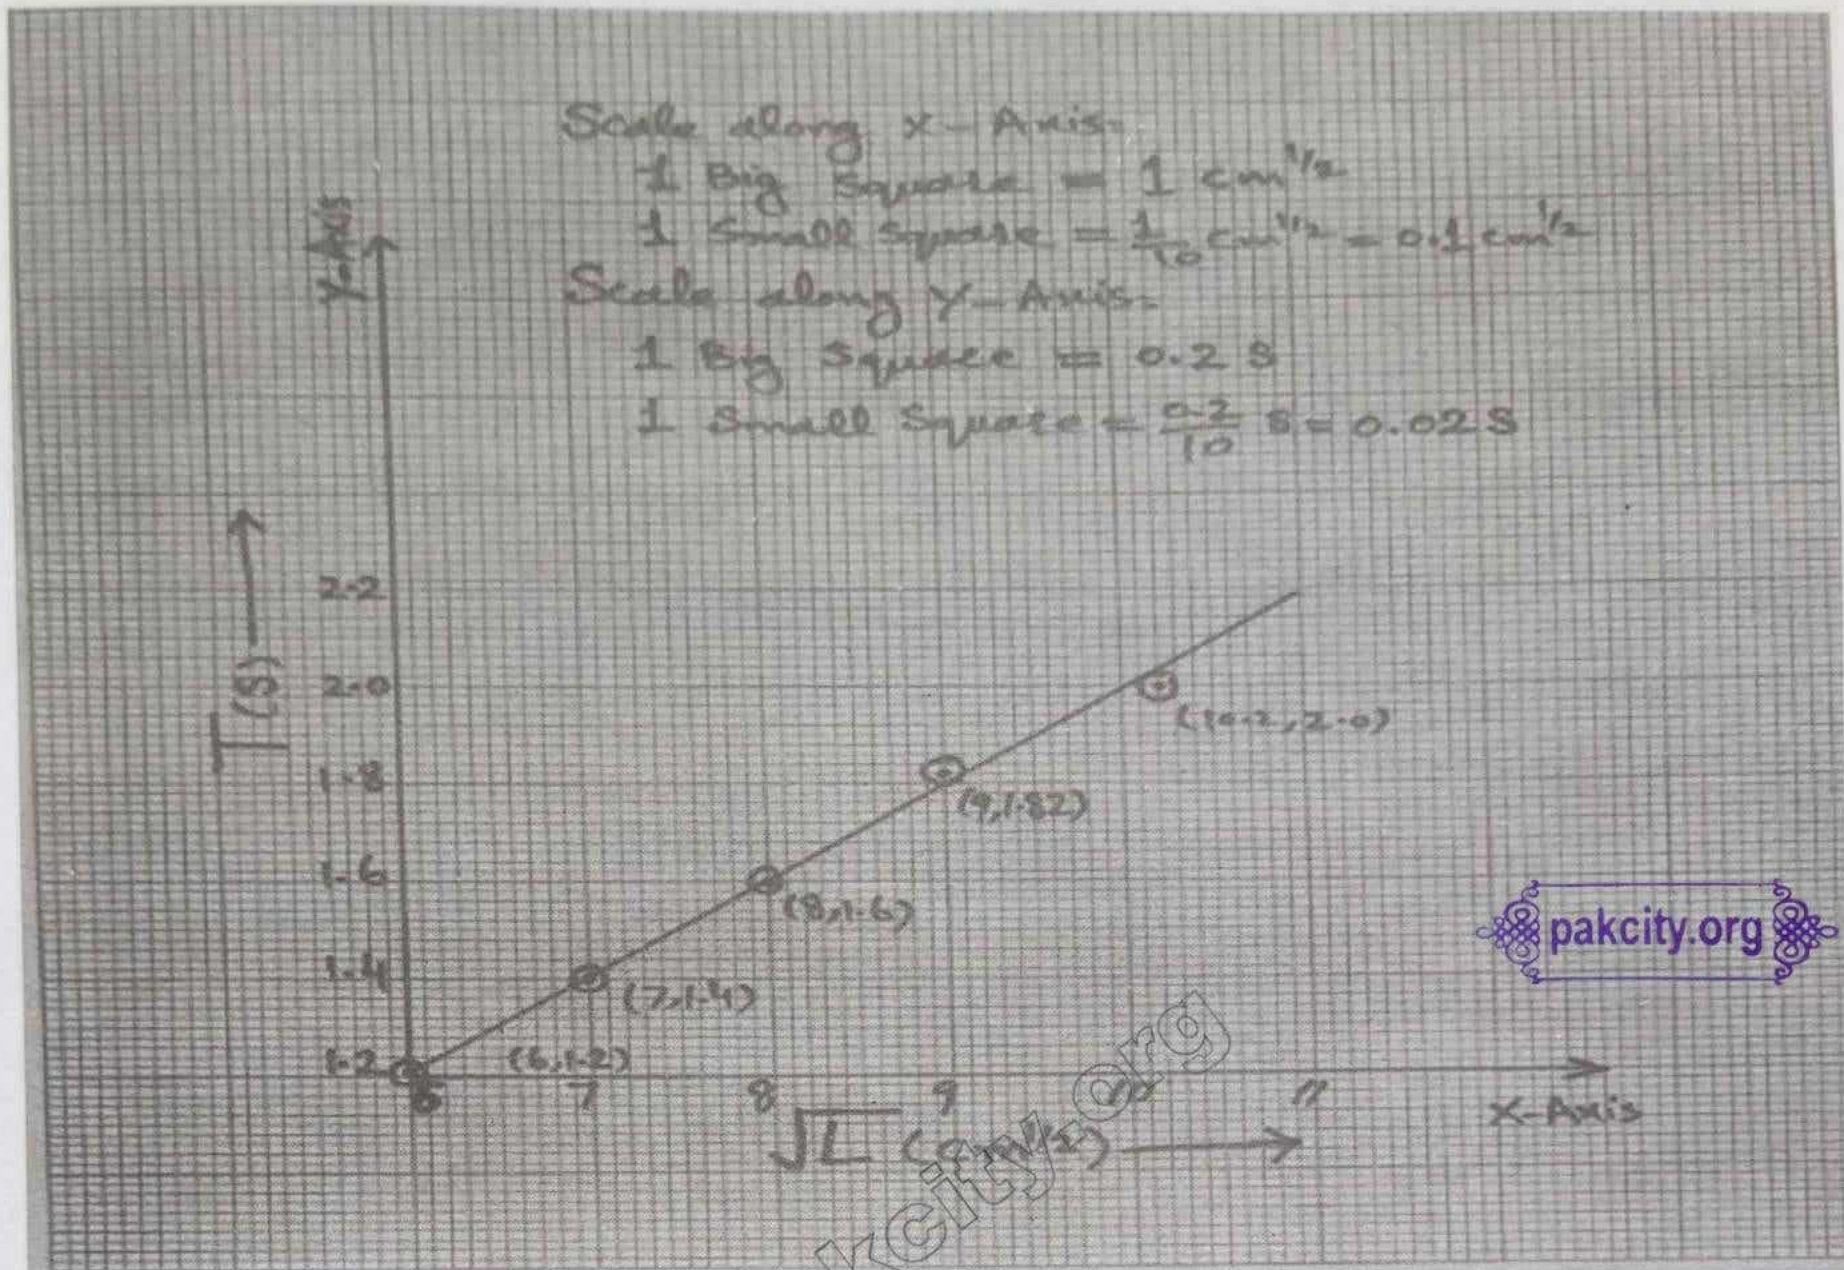 Scale along X-Axis-
1 Big Square = 1 cm^1/2
1 Small Square = 1/10 cm^1/2 = 0.1 cm^1/2
Scale along Y-Axis-
1 Big Square = 0.2 S
1 Small Square = 0.2/10 S = 0.02 S
Y-Axis
T(S)
2.2
2.0
1.8
1.6
1.4
1.2
(10.2, 2.0)
(9, 1.82)
(8, 1.6)
(7, 1.4)
(6, 1.2)
6 7 8 9 10 11
X-Axis
√L (cm^1/2)
pakcity.org
kcity.org